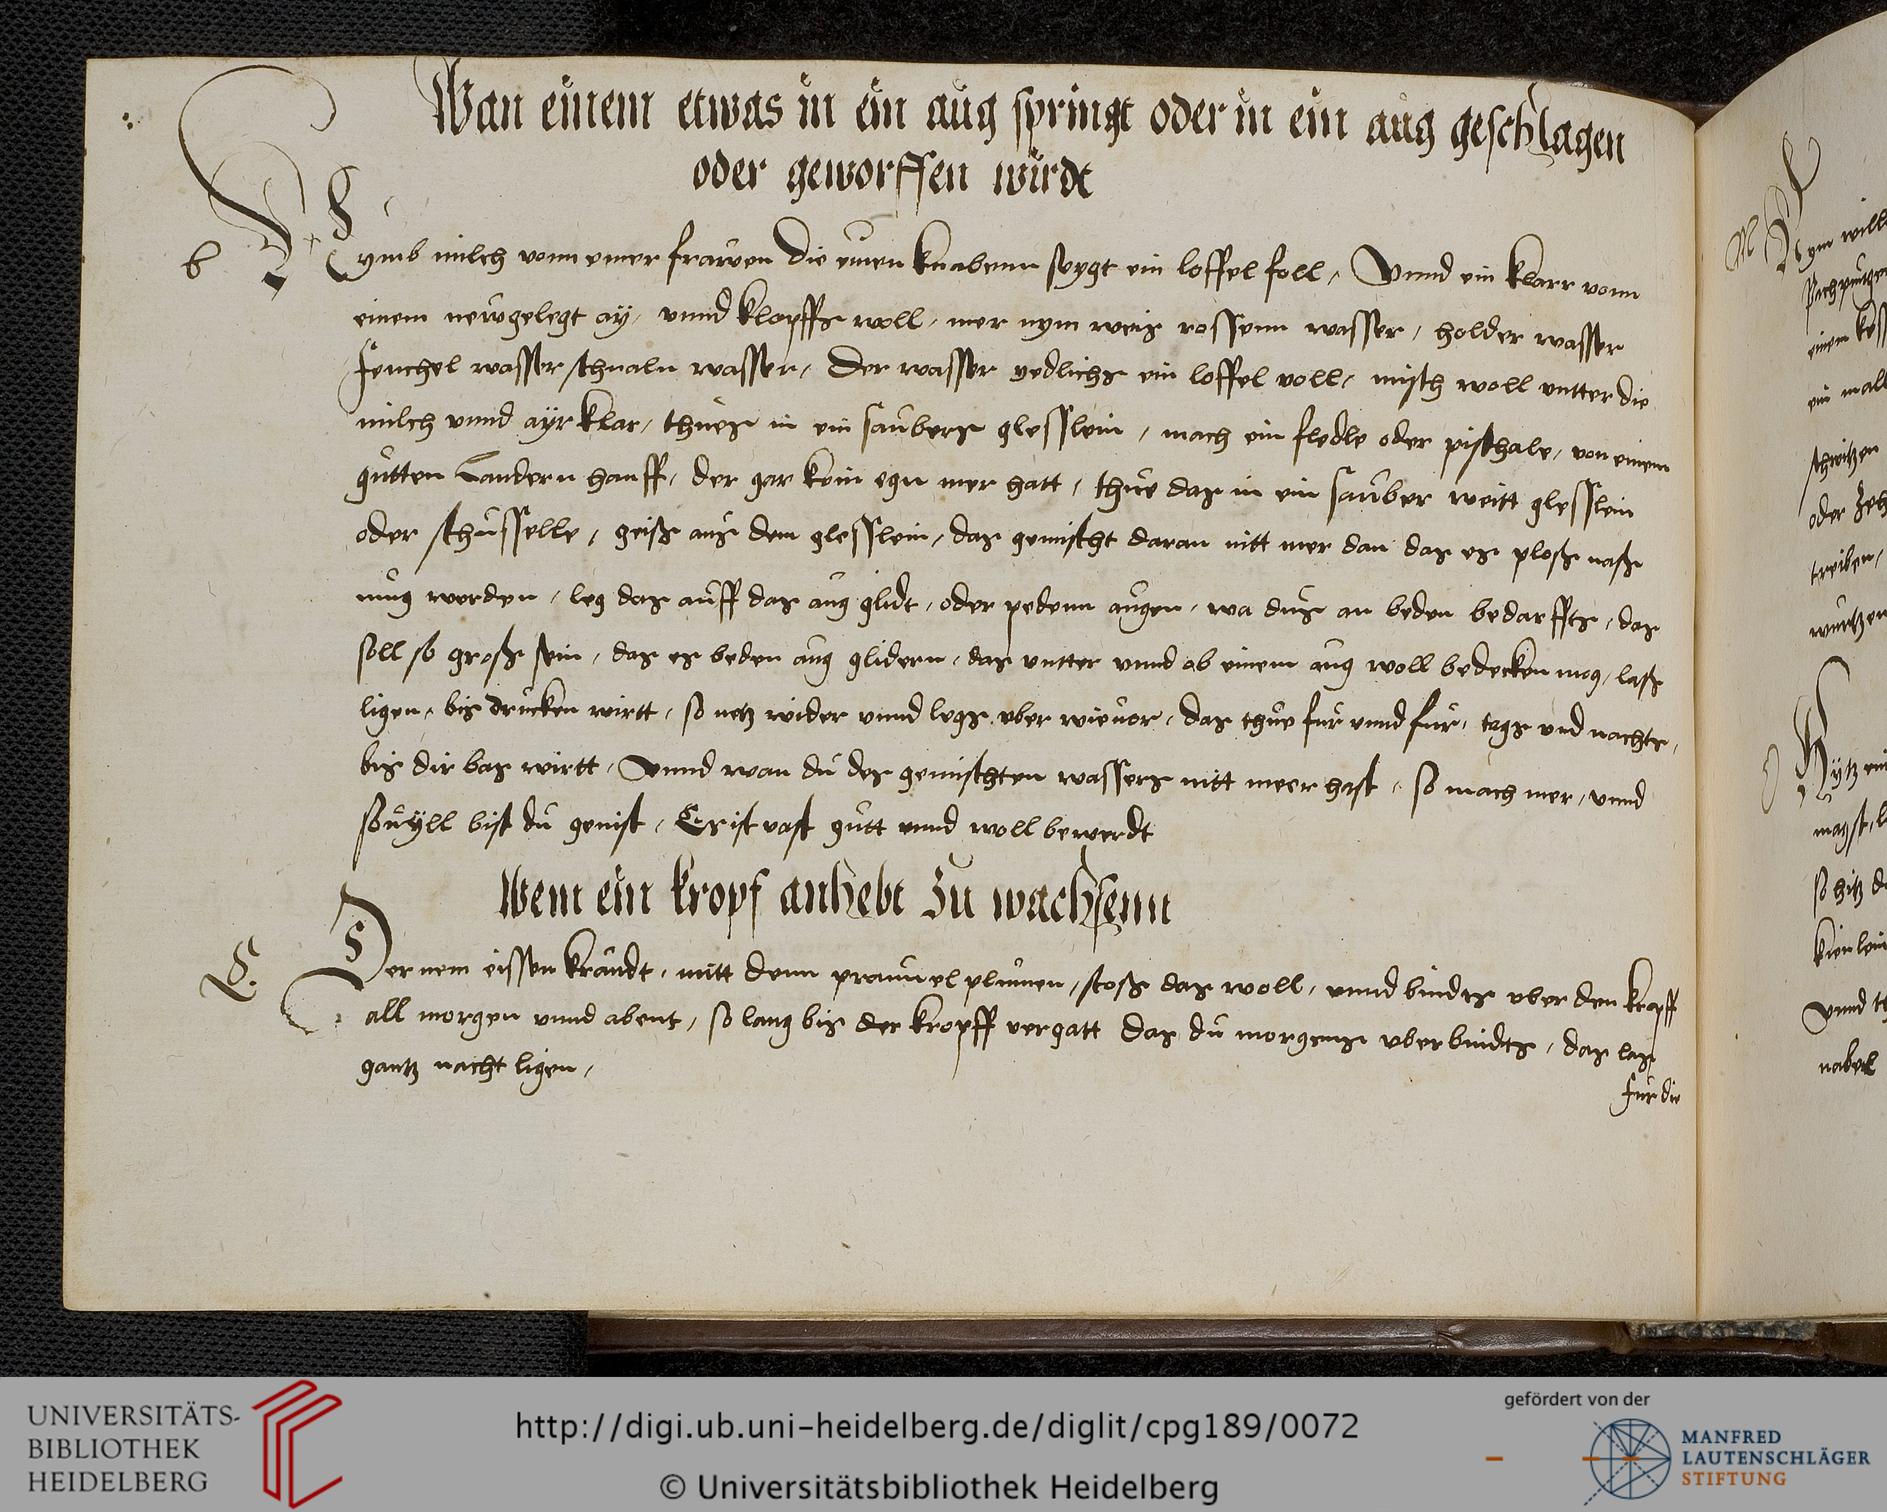 Wan einem etwas in ein aug springt oder in ein aug geschlagen
oder geworffen wirdt
b Nymb milch vonn einer frawen die einen knabenn seygt ein loffel foll, Vnnd ein klarr vonn
einem newgelegt ay, vnnd klopffs woll, mer nym weis rossenn wasser, holder wasser
fenchel wasser schnaln wasser, der wasser yedlichs ein loffel voll, misch woll vntter die
milch vnnd ayr klar, thues in ein saubers glesslein, mach ein fledle oder pischale, von einem
gutten Landern hanff, der gar kein egn mer hatt, thue das in ein sauber weitt glesslein
oder schusselle, geiß aus dem glesslein, das gemischt daran nitt mer dan das es ploß naß
mug werden, leg das auff das aug glidt, oder pedenn augen, wa dus an beden bedarffts, das
soll so groß sein, das es beden aug glidern, das vntter vnnd ob einem aug woll bedecken mog, laß
ligen, bis drucken wirtt, so netz wider vnnd legs vber wieuor, das thue fur vnnd fur, tags vnd nachts,
bis dir bas wirtt, Vnnd wan du des gemischten wassers nitt meer hast, so mach mer, vnnd
souyll bist du genist, Es ist vast gutt vnnd woll bewerdt
Wem ein kropf anhebt zu wachsenn
Der nem eissen kraudt, mitt denn praunel plumen, stoß das woll, vnnd bindes vber den kropff
all morgen vnnd abent, so lang bis der kropff vergatt das du morgens vberbindts, das las
gantz nacht ligen,
fur die
Nym
einem
ein mall
schwitzen
oder
treiben,
wurtzen
magst,
so hitz
Vnnd
nabel
UNIVERSITÄTS-
BIBLIOTHEK
HEIDELBERG
http://digi.ub.uni-heidelberg.de/diglit/cpg189/0072
© Universitätsbibliothek Heidelberg
gefördert von der
MANFRED
LAUTENSCHLÄGER
STIFTUNG